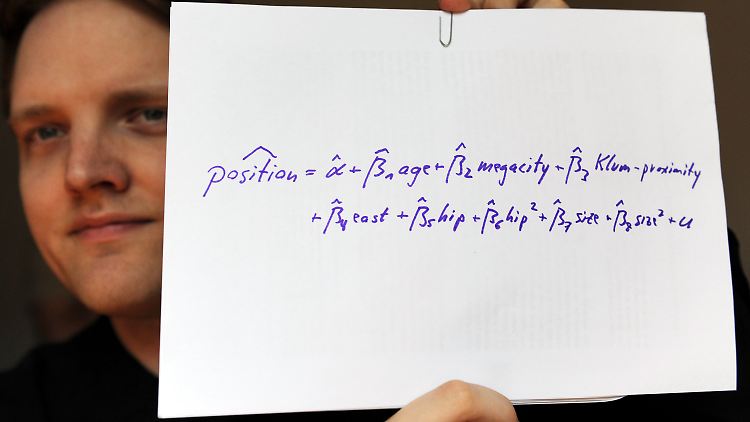 position̂ = α̂ + β̂₁ age + β̂₂ megacity + β̂₃ Klum-proximity
+ β̂₄ east + β̂₅ hip + β̂₆ hip² + β̂₇ size + β̂₈ size² + u